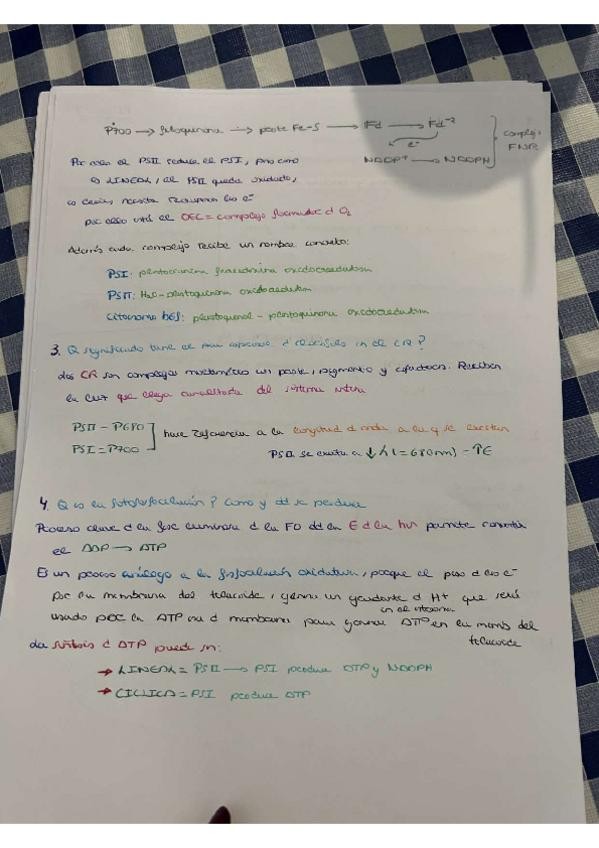 P700 → filoquinona → prote Fe-S → Fd → Fd⁻²
e⁻
NADP⁺ → NADPH
complejo FNR
Por eso el PSII reduce el PSI, pero como
es LINEAL, el PSII queda oxidado,
es decir, necesita recuperar los e⁻
por ello está el OEC = complejo formador d O₂
Además cada complejo recibe un nombre concreto:
PSI: plastocianina ferredoxina oxidoreductasa
PSII: H₂O - plastoquinona oxidoreductasa
Citocromo b6f: plastoquinol - plastoquinona oxidoreductasa
3. Q significado tiene el d in el CR?
Los CR son complejos multiméricos un prote, pigmento y cofactores. Reciben
la luz que llega canalizada del sistema antena
PSII - P680
PSI = P700
hace referencia a la longitud d onda a la q se excitan
PSII se excita a ↓λ (=680nm) - ↑E
4. Q es la fotofosforilación? Como y dd se produce
Proceso clave d la fase luminosa d la FD dd la E d la luz permite convertir
el ADP → ATP
Es un proceso análogo a la fosforilación oxidativa, porque el paso d los e⁻
por la membrana del tilacoide, genera un gradiente d H⁺ que será
in el
usado por la ATP d membrana para generar ATP en la memb del
tilacoide
La síntesis d ATP puede sr:
→ LINEAL = PSII → PSI produce ATP y NADPH
→ CICLICA = PSI produce ATP